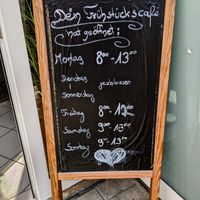 Dein Frühstückscafé
hat geöffnet:
Montag 8⁰⁰-13⁰⁰
Dienstag geschlossen
Donnerstag
Freitag 8⁰⁰-12⁰⁰
Samstag 9⁰⁰-13⁰⁰
Sonntag 9⁰⁰-13⁰⁰